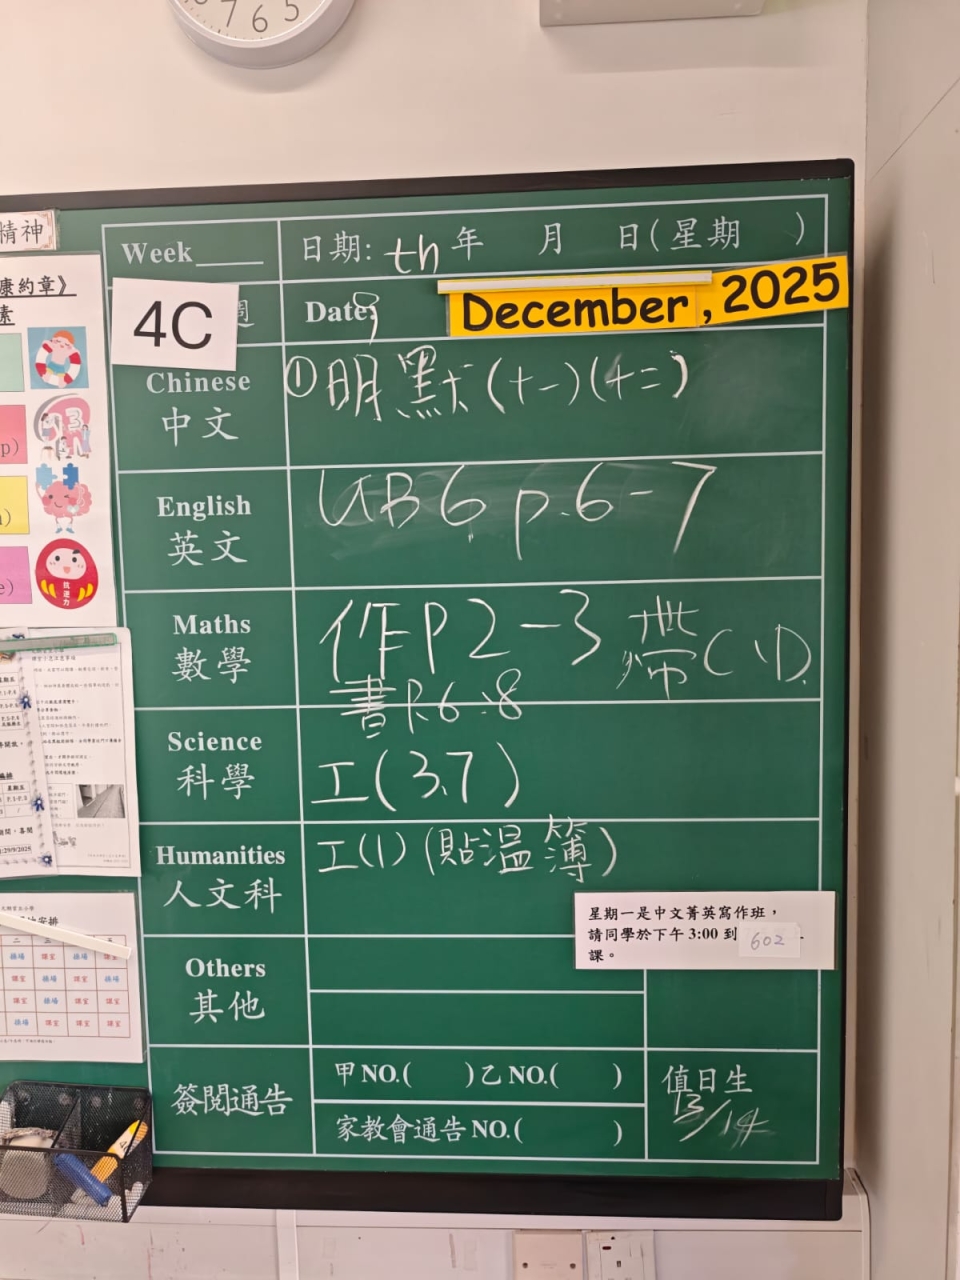 7 6 5
精神
康約章》
素
Week____ 日期: th 年 月 日(星期 )
4C 週 Date: December, 2025
Chinese 中文 ①明默(十一)(十二)
English 英文 UB6 p.6-7
Maths 數學 作P2-3 帶(1).
書P.6-8
Science 科學 工(3,7)
Humanities 人文科 工(1)(貼溫簿)
星期一是中文菁英寫作班，
請同學於下午 3:00 到 602
課。
Others 其他
簽閱通告 甲 NO.( )乙 NO.( )
家教會通告 NO.( )
值日生
13/14
p)
抗逆力
e)
29/9/2025